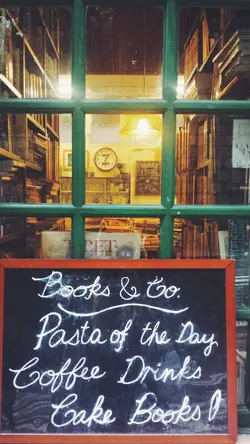 Books & Co.
Pasta of the Day
Coffee Drinks
Cake Books!